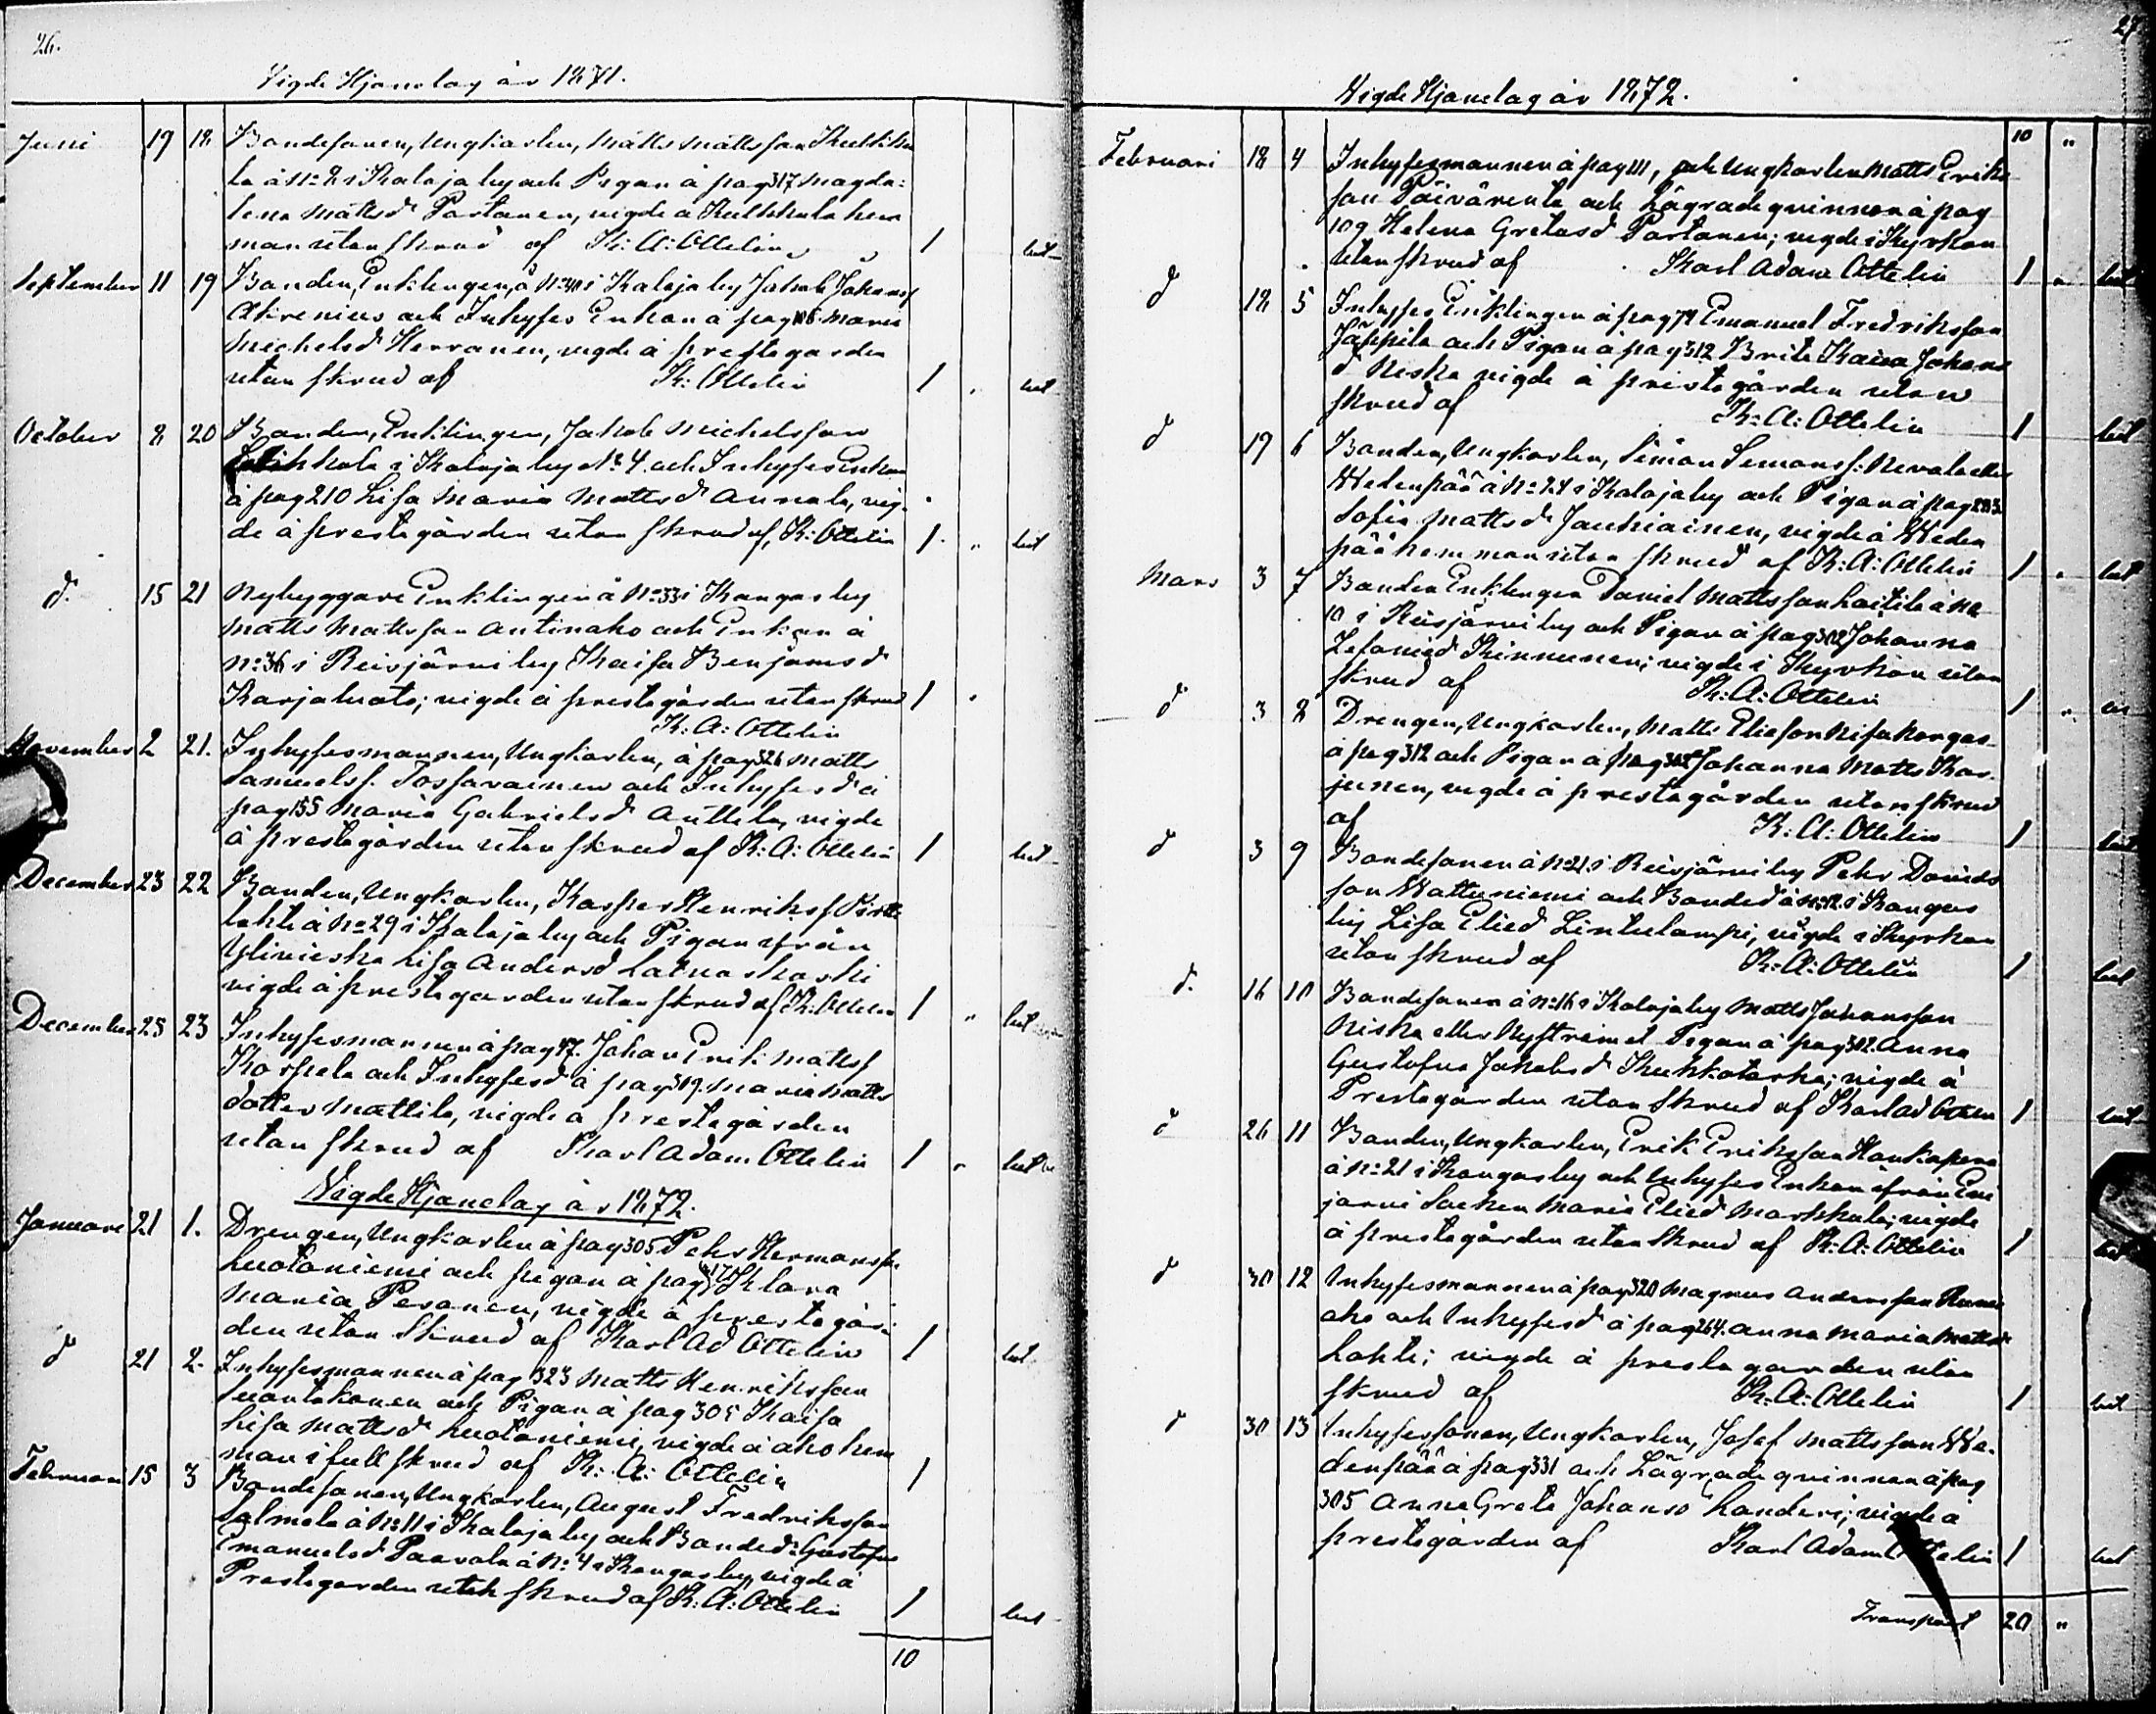 26.
Vigde Hjonelag år 1871.
Juni 19 18 Bondesonen, Ungkarlen, Matts Mattsson Kukku
la å No 2 i Kalaja by och Pigan å pag 317 Magda:
lena Mattsd Partanen, vigde å Kukkula hem
man utan skrud af K: A: Ottelin 1 lut
September 11 19 Bonden, Enklingen, å No 40 i Kalaja by Jakob Johanss
Akrenius och Inhyses Enkan å pag 106 Maria
Michelsd Herranen, vigde å prestegården
utan skrud af K: Ottelin 1 " lut
October 8 20 Bonden, Enklingen, Jakob Michelsson
i Kalaja by No 4. och Inhyses Enkan
å pag 210 Lisa Maria Mattsd Annala, vig-
de å prestegården utan skrud af, K: Ottelin 1 " lut
d. 15 21 Nybyggare Enklingen å No 33 i Kangas by
Matts Mattsson Antinaho och Enkan å
No 36 i Reisjärvi by Kaisa Benjamsd
Karjaluoto; vigde å prestegården utan skrud 1 "
K: A: Ottelin
November 2 21. Inhysesmannen, Ungkarlen, å pag 326 Matts
Samuelss. Tossavainen och Inhysesd å
pag 155 Maria Gabrielsd Anttila, vigde
å prestegården utan skrud af K: A: Ottelin 1 lut
December 23 22 Bonden, Ungkarlen, Kasper Henrikss Pirtti
lahti å No 29 i Kalaja by och Pigan ifrån
Ylivieska Lisa Andersd
vigde å prestegården utan skrud af K: Ottelin 1 " lut
December 25 23 Inhysesmannen å pag 47. Johan Erik Mattss
Korpela och Inhysesd å pag 319. Maria Matts
dotter Mattila, vigde å prestegården
utan skrud af Karl Adam Ottelin 1 " lut
Vigde Hjonelag år 1872.
Januari 21 1. Drengen, Ungkarlen å pag 305 Pehr Hermansson
Luotoniemi och pigan å pag 317 Klara
Maria Pesonen, vigde å prestegår-
den utan skrud af Karl Ad Ottelin 1 lut
d 21 2. Inhysesmannen å pag 323 Matts Henriksson
och Pigan å pag 305 Kaisa
Lisa Mattsd Luotoniemi, vigde å Aho hem
man i full skrud af K: A: Ottelin 1
Februari 15 3 Bondesonen, Ungkarlen, August Fredriksson
Salmela å No 11 i Kalaja by och Bonded: Gustafva
Emanuelsd Paavola å No 4 i Kangas by, vigde å
Prestegården utan skrud af K: A: Ottelin 1 lut
10
27
Vigde Hjonelag år 1872.
10 "
Februari 18 4 Inhysesmannen å pag 111, och Ungkarlen Matts Eriks
son Päivärenta och Lägrade qvinnan å pag
109 Helena Gretasd Partanen; vigde i Kyrkan
utan skrud af Karl Adam Ottelin 1 " lut
d 18 5 Inhyses Enklingen å pag 78 Emanuel Fredriksson
Jäppilä och Pigan å pag 312 Brita Kaisa Johans
d Niska vigde å prestegården utan
skrud af K: A: Ottelin 1 lut
d 19 6 Bonden, Ungkarlen, Simon Simonss: Nevala eller
Wedenpää å No 24 i Kalaja by och Pigan å pag
Sofia Mattsd Jauhiainen, vigde å Weden
pää hemman utan skrud af K: A: Ottelin 1 " lut
Mars 3 7 Bonden Enklingen Daniel Mattsson Laitila å No
10 i Reisjärvi by och Pigan å pag 302 Johanna
Zefanied Kinnunen; vigde i Kyrkan utan
skrud af K: A: Ottelin 1 "
d 3 8 Drengen, Ungkarlen, Matts Eliesson Nisukangas
å pag 312 och Pigan å pag 302 Johanna Matts Kar
junen, vigde å prestegården utan skrud
af K: A: Ottelin 1 lut
d 3 9 Bondesonen å No 21 i Reisjärvi by Pehr Davids
son Wattuniemi och Bonded å No 12 i Kangas
by Lisa Elied Lintulampi, vigde i Kyrkan
utan skrud af K: A: Ottelin 1 lut
d. 16 10 Bondesonen å No 16 i Kalaja by Matts Johansson
Niska eller Nyström o Pigan å pag 302. Anna
Gustafva Jakobsd Kukkotaska; vigde å
Prestegården utan skrud af Karl Ad Ottelin 1 lut
d 26 11 Bonden, Ungkarlen, Erik Eriksson Haukapera
å No 21 i Kangas by och Inhyses Enkan ifrån Evi
järvi Socken Maria Elied Markkula; vigde
å prestegården utan skrud af K: A: Ottelin 1 lut
d 30 12 Inhysesmannen å pag 320 Magnus Andersson
aho och Inhysesd å pag 264. Anna Maria Mattsd
Lahti; vigde å prestegården utan
skrud af K: A: Ottelin 1 lut
d 30 13 Inhysessonen, Ungkarlen, Josef Mattsson We-
denpää å pag 331 och Lägrade qvinnan å pag
305 Anna Greta Johansd Landeri; vigde å
prestegården af Karl Adam Ottelin 1 lut
Transport 20 "